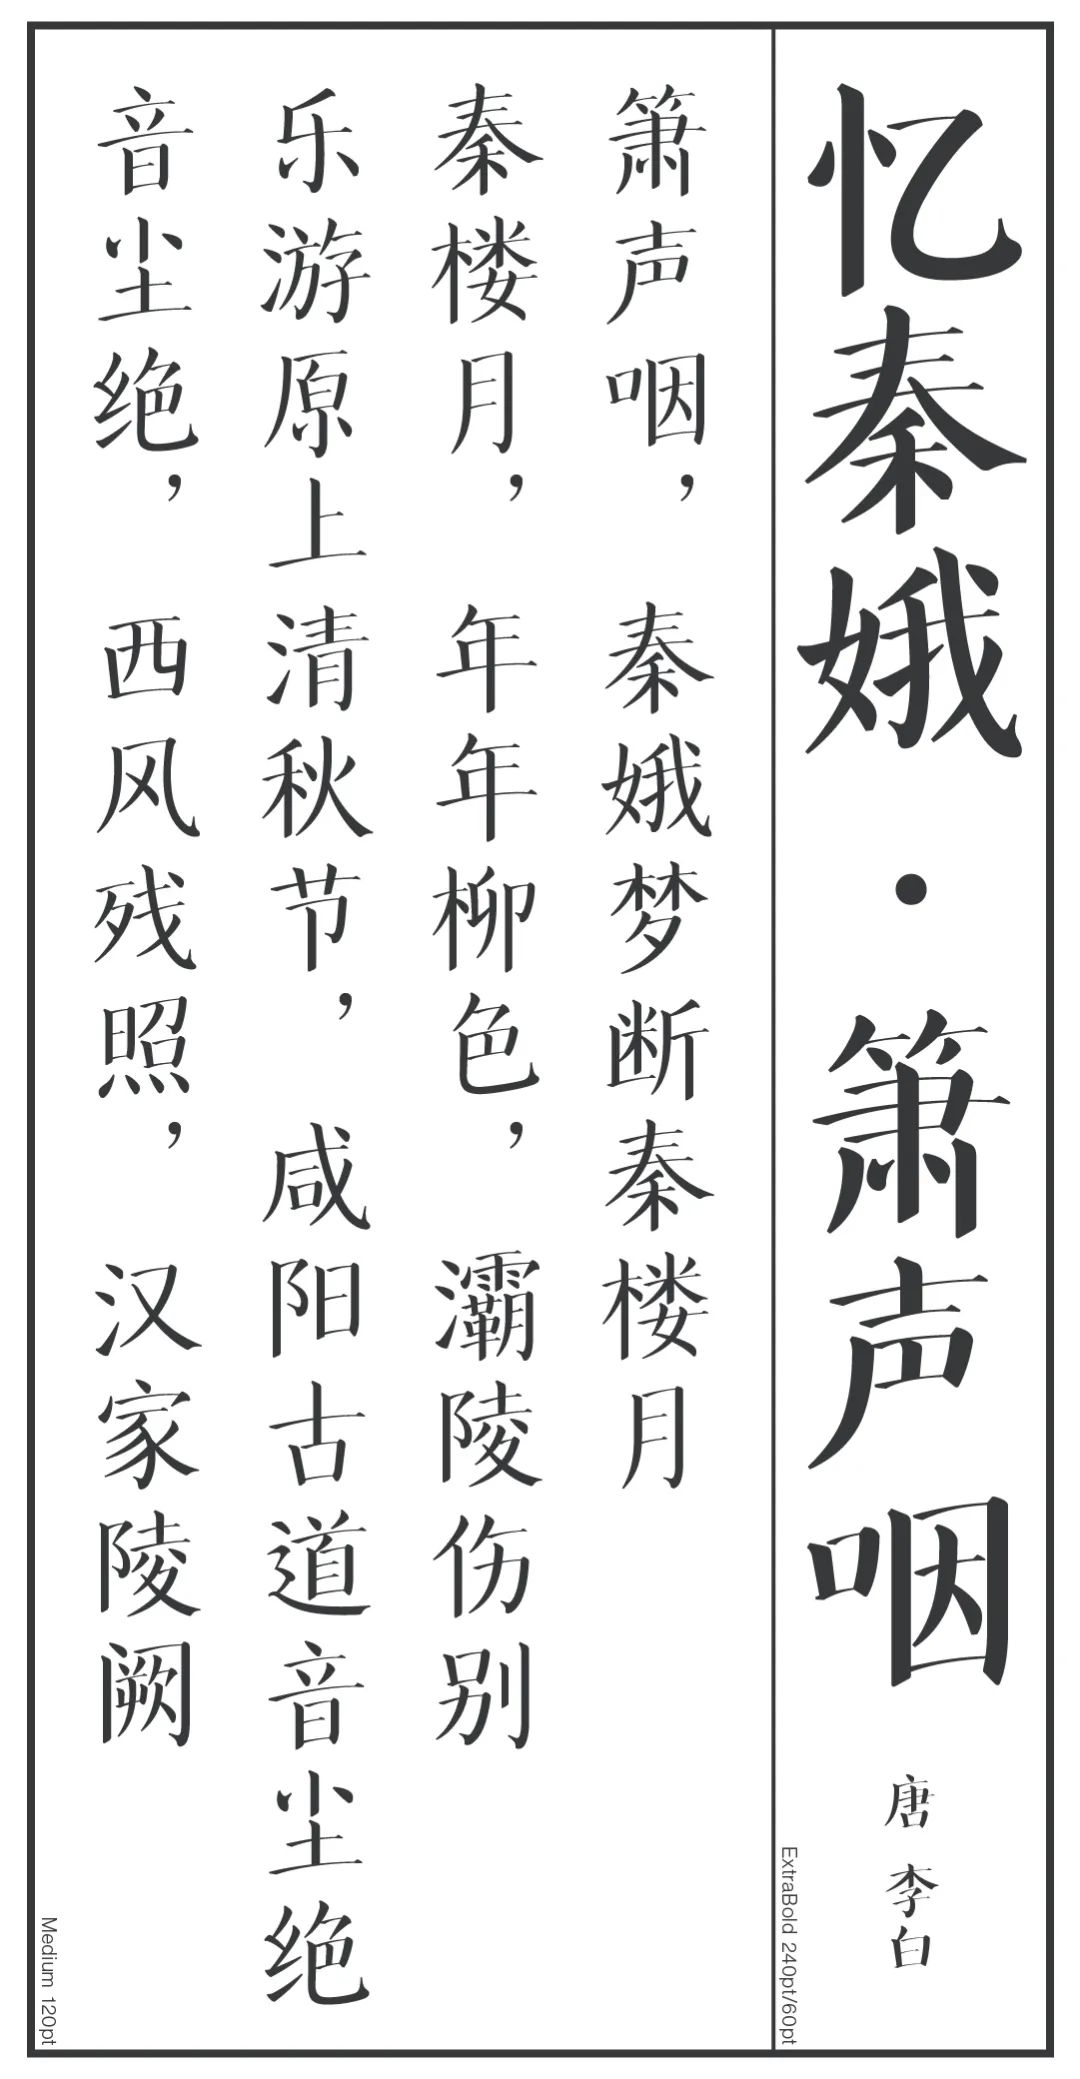 忆秦娥·箫声咽
唐 李白
ExtraBold 240pt/60pt
箫声咽， 秦娥梦断秦楼月
秦楼月， 年年柳色， 灞陵伤别
乐游原上清秋节， 咸阳古道音尘绝
音尘绝， 西风残照， 汉家陵阙
Medium 120pt